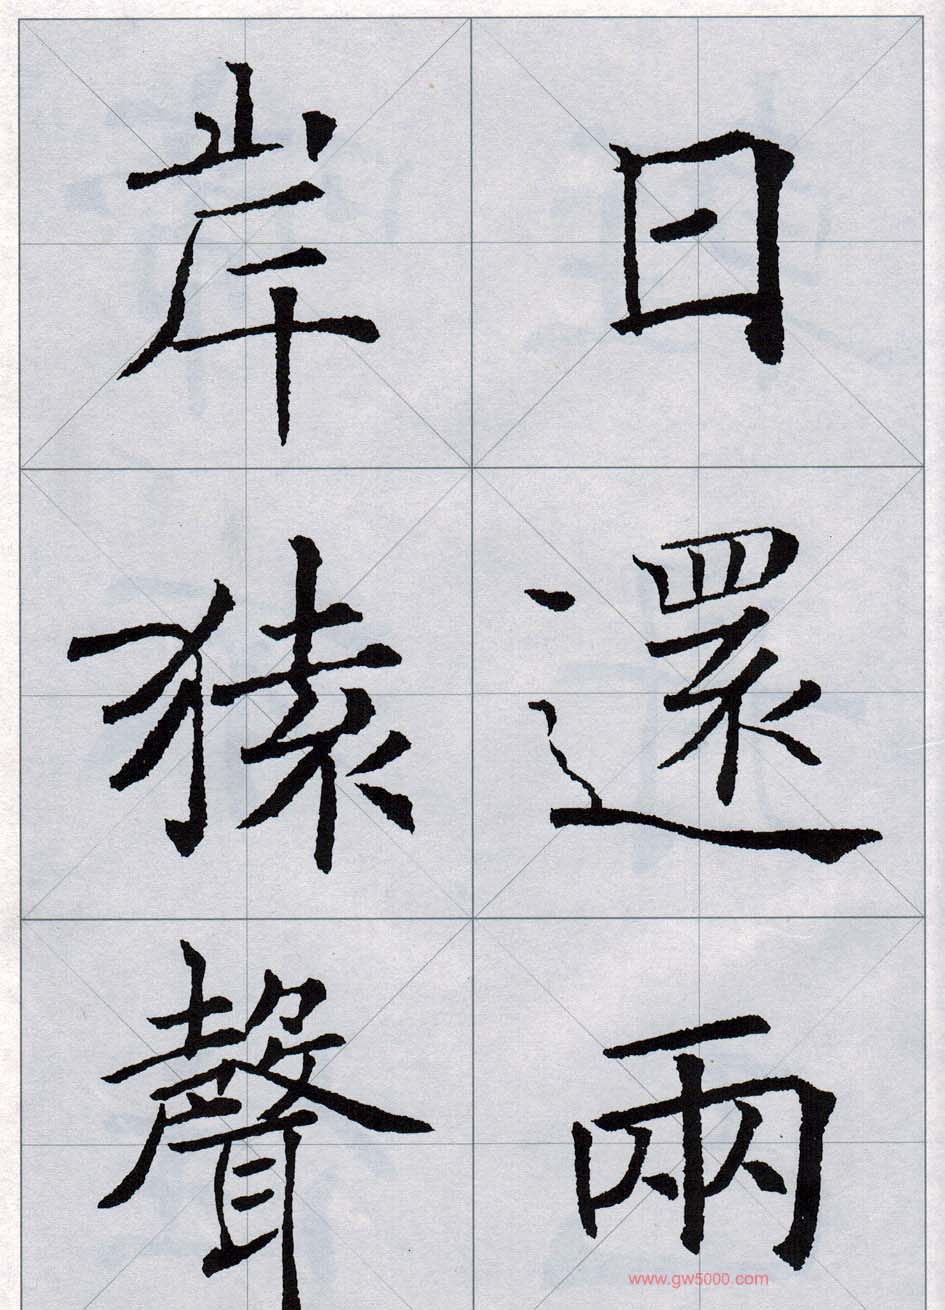 日還兩
岸猿聲
www.gw5000.com